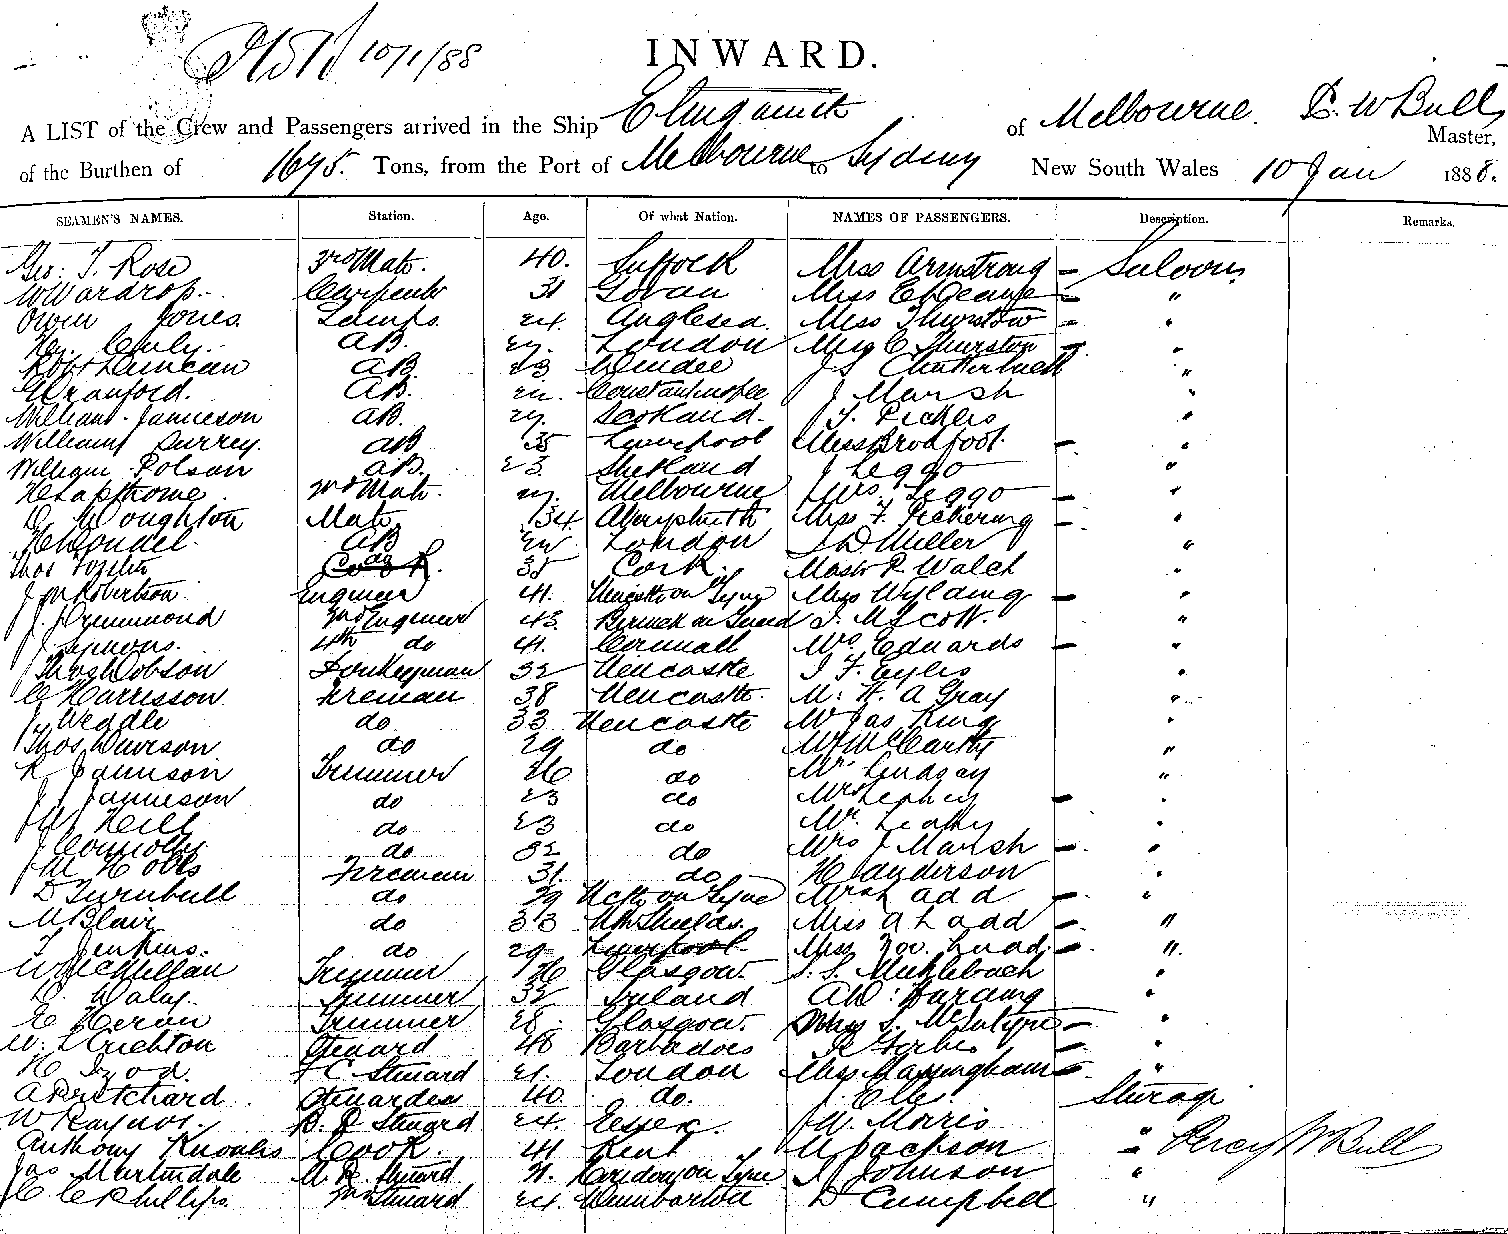 10/1/88
INWARD.
A LIST of the Crew and Passengers arrived in the Ship Elingamite of Melbourne. P. W Bull Master,
of the Burthen of 1675. Tons, from the Port of Melbourne to Sydney New South Wales 10 Jan 1888.
SEAMEN'S NAMES. Station. Age. Of what Nation. NAMES OF PASSENGERS. Description. Remarks.
Geo: T. Rose 3rd Mate. 40. Suffolk Miss Armstrong - Saloon
W Wardrop. Carpenter 31 Govan Miss - "
Owen Jones. Lamps. 24. Anglesea. Miss Thurstow - "
AB. London Miss C Thurston - "
Robt Duncan AB. 23 Dundee J S Clutterbuck "
Cranford. AB. Constantinople J Marsh "
William Jamieson AB. 27. Scotland. T. Pickles "
William Surrey. AB 35 Liverpool Miss Brodfoot. - "
William Polson AB. 23. Shetland J Leggo "
H Lapthorne. 2nd Mate. Melbourne Mrs. Leggo - "
D. Woughton Mate. 34. Aberystwith Miss F. Pickering - "
AB London D Miller "
Thos 35 Cork. Master P. Walch "
J M Robertson. Engineer 41. Newcastle on Tyne Miss Wylding - "
J. Drummond 2nd Engineer 43. Berwick on Tweed T. M Scott. "
J Symons. 4th do 41. Cornwall Mrs Edwards - "
Thos Dobson Donkeyman 32 Newcastle J F Eyles "
C Harrisson Fireman 38 Newcastle. Mr. H. A Gray "
J. Weddle do 33 Newcastle Mr Jas King "
Thos Davison do 29 do Mr McCarthy "
R Jamison Trimmer 26 do Mr Lindsay "
J. Jamieson do 23 do Mrs -
Neill do 23 do Mr. Leahy
J Connolly do 32 do Mrs J Marsh -
M Hobbs Fireman 31. do H Anderson
D Turnbull do 39 Nctle on Tyne Mrs Ladd - "
M Blair do 33 Nth Shields. Miss A Ladd - "
T Jenkins. do 29 Liverpool Miss Ladd - "
W McMillan Trimmer 26 Glasgow. Muhlebach
D. Daly. Trimmer 32 Ireland A W: Harding
C Heron Trimmer 28. Glasgow. L. McIntyre -
W. Crichton Steward 48 Barbadoes -
H Izod. F C Steward 21. London Miss Massingham -
A Pritchard Stewardess 40. do. J Ellis Steerage
W Raynor. B. R Steward 24. Essex. W. Morris "
Anthony Knowles Cook. 41 Kent W Jackson " Percy W Bull
Jas Martindale M. R Steward 21. on Tyne J Johnson "
C C Phillips. 2nd Steward 24. Dumbarton D Campbell "